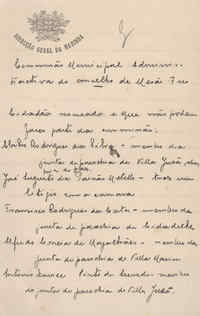 DIRECÇÃO GERAL DA MARINHA
Commissão Municipal Adminis-
trativa do concelho de Mesão Frio
Cidadão nomeado e que não podem
fazer parte da commissão:
Rodrigues da Silva - membro da
junta de parochia de Villa Jusã
José Augusto - tem um
litigio com a camara
Francisco Rodrigues da Costa - membro da
junta de parochia de Cidadelhe
Alfredo Correia de Magalhães - membro da
junta de parochia de Villa Marim
Antonio - membro
da junta de parochia de Villa Jusã.